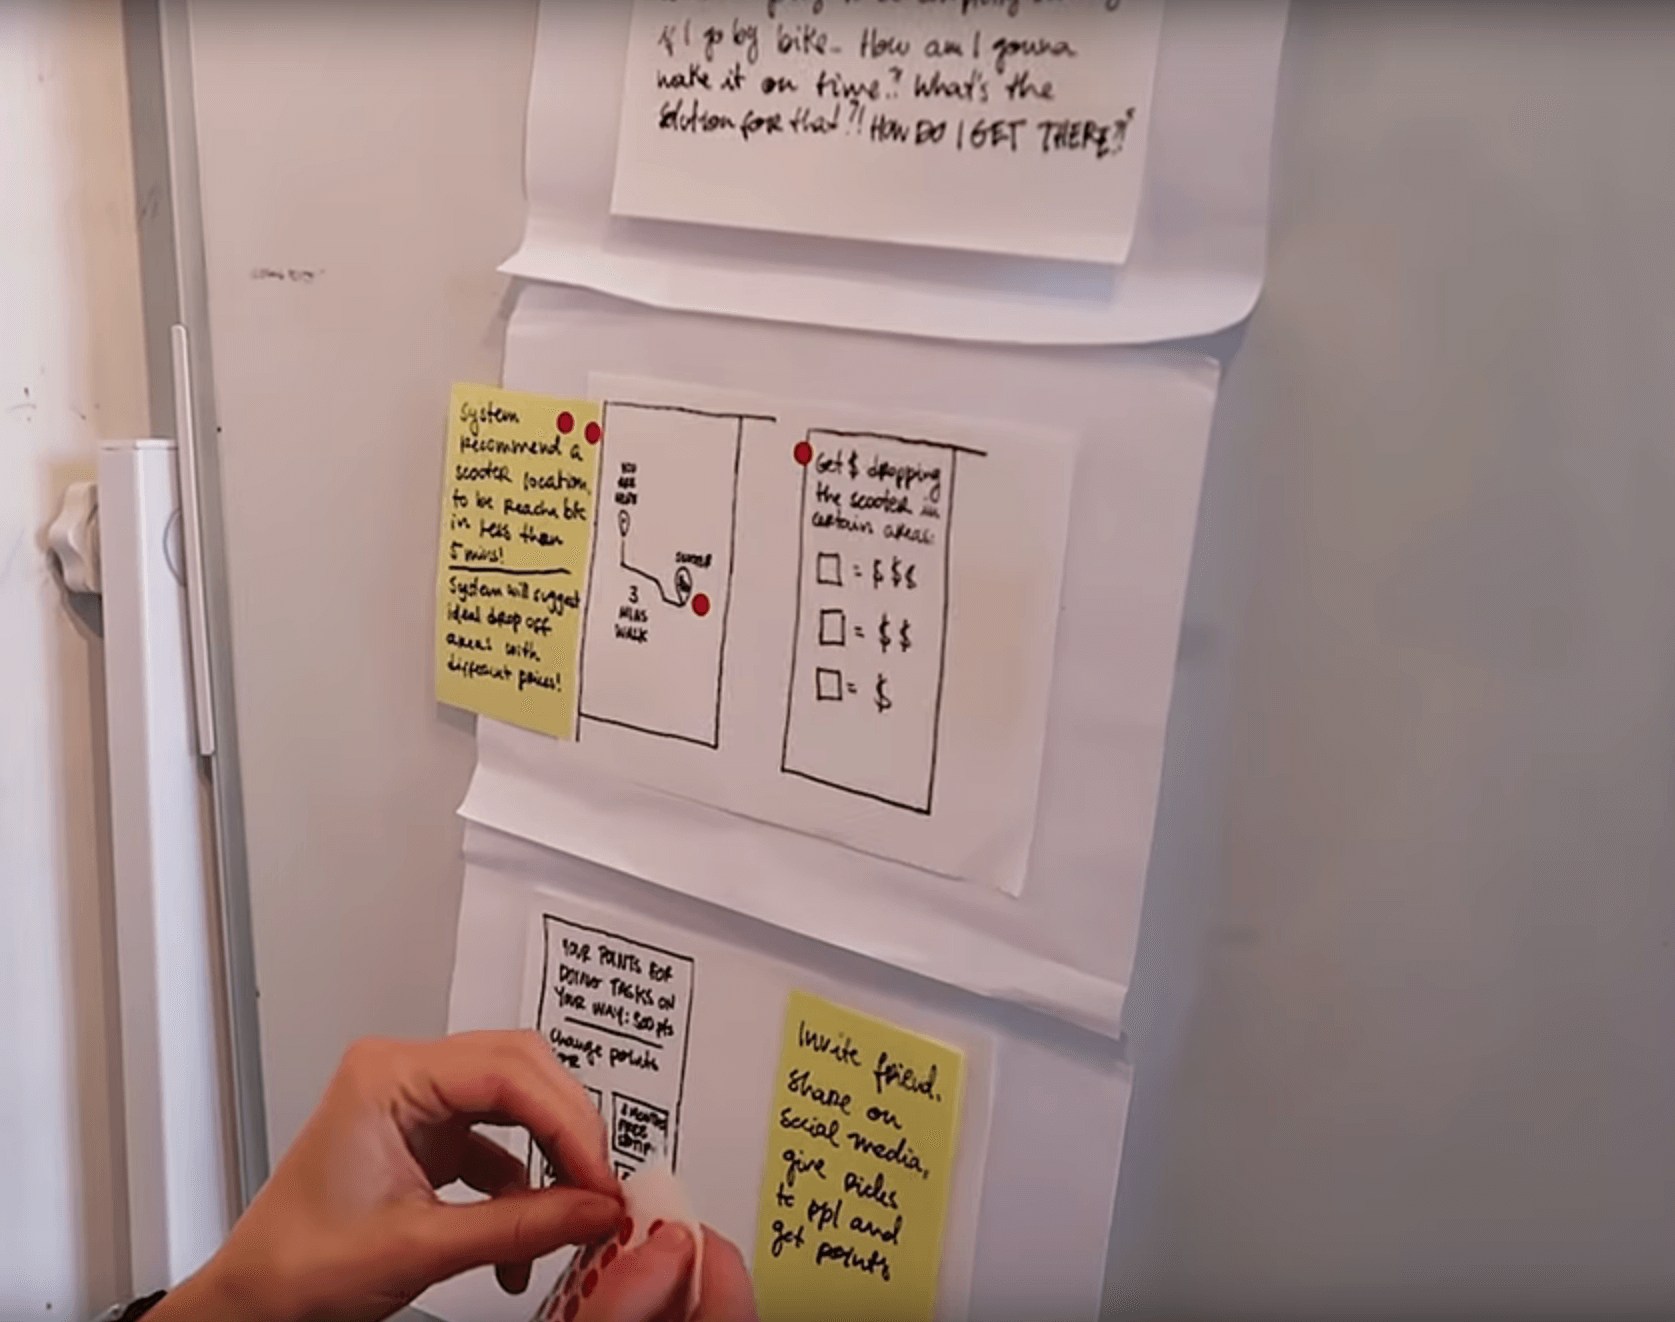 if I go by bike.. How am I gonna
make it on time?! What's the
solution for that?! HOW DO I GET THERE?!"
System
recommend a
scooter location
to be reachable
in less than
5 mins!
System will suggest
ideal drop off
areas with
different prices!
YOU
ARE
HERE
SCOOTER
3
MINS
WALK
Get $ dropping
the scooter in
certain areas:
= $$$
= $$
= $
YOUR POINTS FOR
DOING TASKS ON
YOUR WAY: 300 pts
Change points
FOR
MONTHS
FREE
Invite friend.
Share on
Social media,
give rides
to ppl and
get points